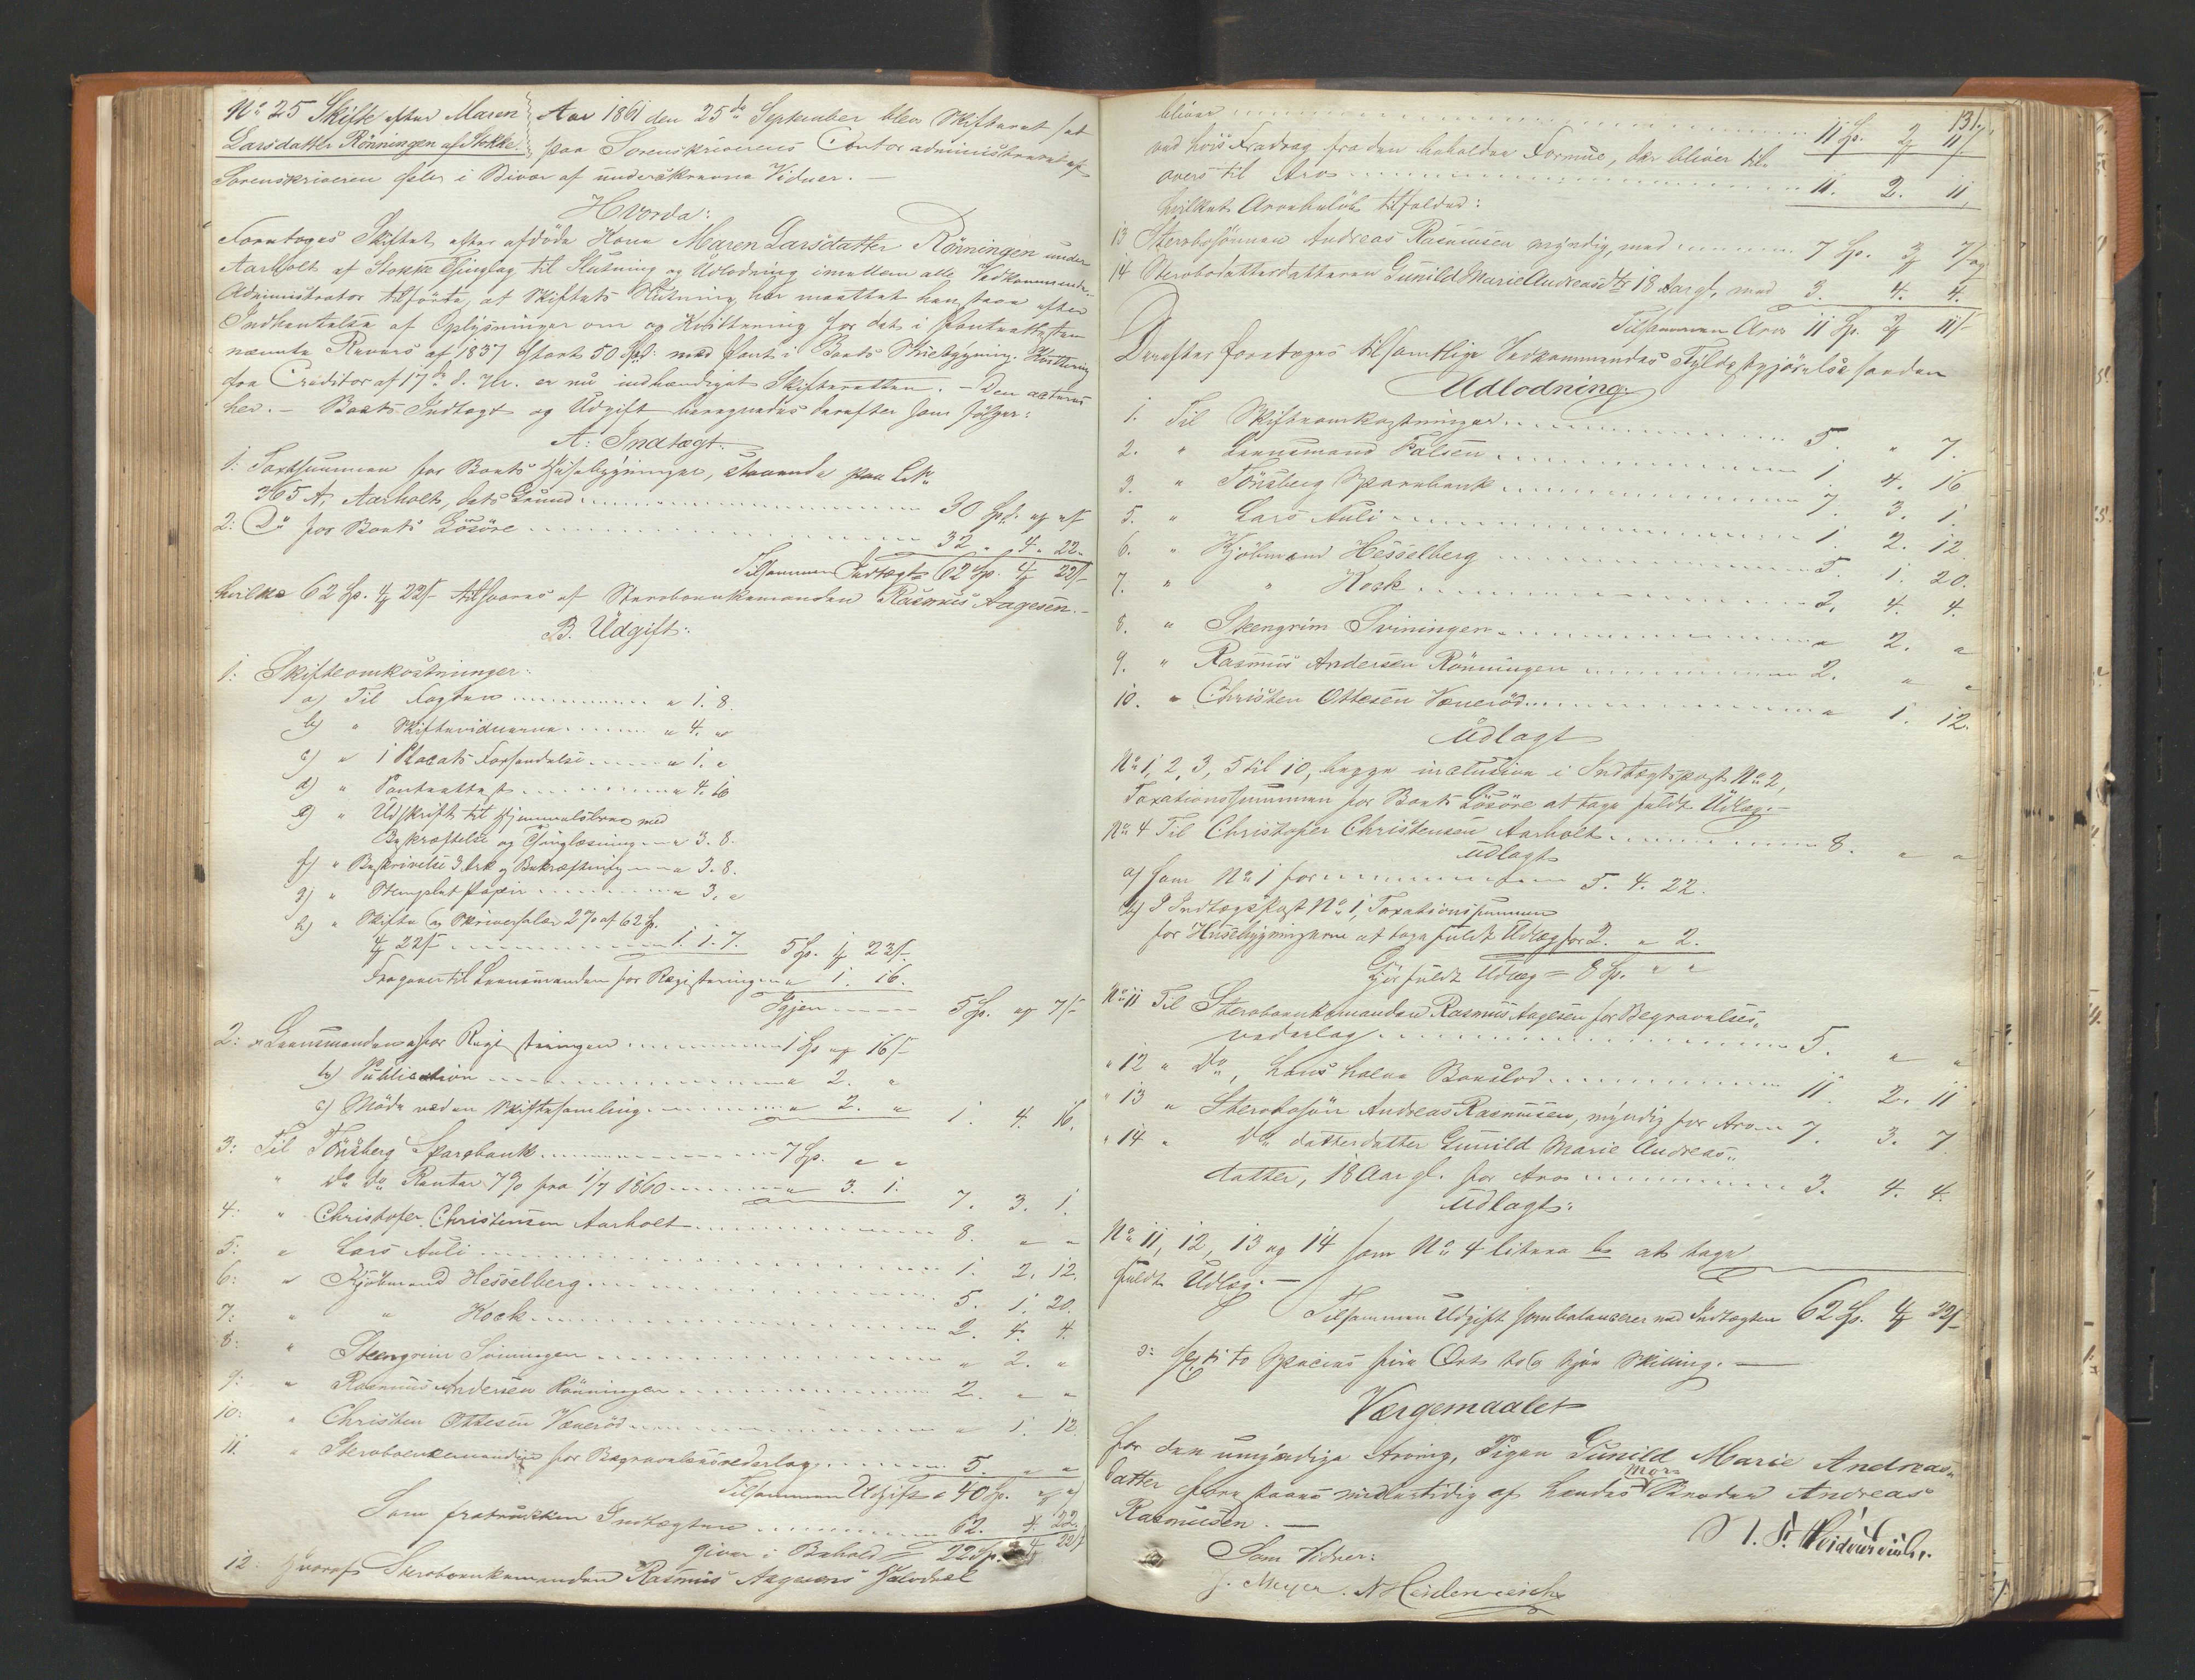 No 25 Skifte efter Maren
Larsdatter Rönningen af Stokke.
Aar 1861 den 25de September blev Skifteret sat
paa Sorenskriverens Contor administreret af
Sorenskriveren selv i Bivær af underskrevne Vidner. —
Hvorda:
Foretoges Skiftet efter afdøde Kone Maren Larsdatter Rönningen under
Aarholt af Stokke Thinglag til Slutning og Udlodning imellem alle Vedkommende.
Administrator tilførte, at Skiftets Slutning har maattet henstaae efter
Indhentelse af Oplysninger om og Kvittering for det i Panteattesten
nævnte Revers af 1837 stort 50 Spd. med Pant i Boets Huusbygning. Kvittering
fra Creditor af 17de d. M. er nu indhændiget Skifteretten. — Den acteres
her. — Boets Indtægt og Udgift beregnedes derefter som følger:
A. Indtægt:
1: Taxtsummen for Boets Huusebygninger, staaende paa Lit.
365 A, Aarholt, dets Grund 30 Spd. " "
2: Do for Boets Lösöre 32 " 4 " 22 "
Tilsammen Indtægt 62 Sp. 4 22 s
hvilke 62 Sp. 4 22 s tilsvares af Sterboenkemanden Rasmus Aagesen. —
B. Udgift:
1: Skifteomkostninger:
a) Til Fogden " 1. 8.
b) " Skiftevidnerne " 4. "
c) " 1 Placats Forsendelse " 1. "
d) " Panteattest " 4. 16
e) " Udskrift til Hjemmelsbrev med
Bekræftelse og Thinglæsning " 3. 8.
f) " Beskrivelse 3 Ark og Bekræftning " 3. 8.
g) " Stemplet Papir " 3. "
h) " Skifte og Skriversalær 2% af 62 Sp.
4 22 s 1. 1. 7. 5 Sp. 1 23 s
Fragaaer til Lensmanden for Registrering " 1. 16.
Igjen 5 Sp. " 7 s
2: Lensmanden a) for Registreringen 1 Sp. " 16 s
b) Publication " 2. "
c) Møde ved en Skiftesamling " 2. " 1. 4. 16.
3: Til Tönsberg Sparebank 7 Sp. " "
" do do Renter 7% fra 1/7 1860 " 3. 1. 7. 3. 1.
4: " Christofer Christensen Aarholt 8. " "
5: " Lars Auli 1. 2. 12.
6: " Kjöbmand Hesselberg 5. 1. 20.
7: " " Kock 2. 4. 4.
8: " Steengrim Sviningen " 2. "
9: " Rasmus Andersen Rönningen 2. " "
10: " Christen Ottesen Væneröd " 1. 12
11. " Sterboenkemanden for Begravelsesvederlag 5. " "
Tilsammen Udgift 40 Sp. " "
Som fratrukken Indtægten 62. 4. 22.
giver i Behold 22 Sp. 4 22 s
12. Hvoraf Sterboenkemanden Rasmus Aagesens Halvdeel
131.
bliver 11 Sp. 2 11 s
ved hvis Fradrag fra den beholdne Formue, der bliver til-
overs til Arv 11. 2. 11,
hvilket Arvebeløb tilfalder:
13 Sterbosønnen Andreas Rasmusen myndig, med 7 Sp. 3 7 s og
14 Sterbodatterdatteren Gunild Marie Andreasdtr 18 Aar gl., med 3. 4. 4.
Tilsammen Arv 11 Sp. 2 11 s
Derefter foretoges til samtlige Vedkommendes Fyldestgjörelse saadan
Udlodning:
1. Til Skifteomkostninger 5. " 7.
2. " Lensmand Falsen 1. 4. 16
3. " Tönsberg Sparebank 7. 3. 1.
5. " Lars Auli 1. 2. 12
6. " Kjöbmand Hesselberg 5. 1. 20.
7. " " Kock 2. 4. 4.
8. " Steengrim Sviningen " 2. "
9. " Rasmus Andersen Rönningen 2. " "
10. " Christen Ottesen Væneröd " 1. 12.
Udlagt
No 1, 2, 3, 5 til 10, begge inclusive i Indtægtspost No 2,
Taxationssummen for Boets Lösöre at tage fuldt Udlæg. —
No 4 Til Christofer Christensen Aarholt 8. " "
Udlagt
a) som No 1 for 5. 4. 22.
b) I Indtægtspost No 1, Taxationssummen
for Husebygningerne at tage fuldt Udlæg for 2. " 2.
Gjör fuldt Udlæg = 8 Sp. " "
No 11 Til Sterboenkemanden Rasmus Aagesen for Begravelses-
vederlag 5. " "
" 12 " do, hans halve Boeslod 11. 2. 11
" 13 " Sterbosön Andreas Rasmusen, myndig for Arv 7. 3. 7
" 14 " do datterdatter Gunild Marie Andreas-
datter, 18 Aar gl. for Arv 3. 4. 4.
Udlagt:
No 11, 12, 13 og 14 som No 4 litera b at tage
fuldt Udlæg. —
Tilsammen Udgift som balancerer med Indtægten 62 Sp. 4 22 s
o: sexti to Species fire Ort to og tyve Skilling. —
Værgemaalet
for den umyndige Arving, Pigen Gunild Marie Andreas-
datter forestaaes midlertidig af hendes Mors Broder Andreas
Rasmusen. —
Som Vidner:
J. Meyer. N Heidenreich